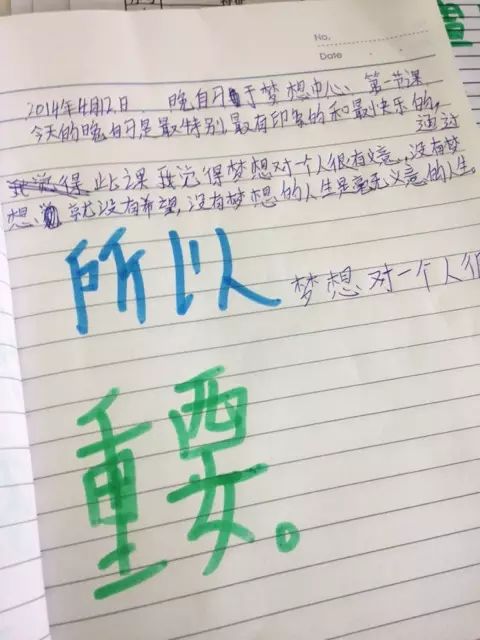 No.
Date
2014年4月12日 晚自习于梦想中心、第一节课
今天的晚自习是最特别最有印象的和最快乐的, 通过
我觉得 此课 我觉得梦想对一个人很有义意,没有梦
想 就没有希望,没有梦想的人生是毫无义意的人生,
所以 梦想对一个人很
重要。